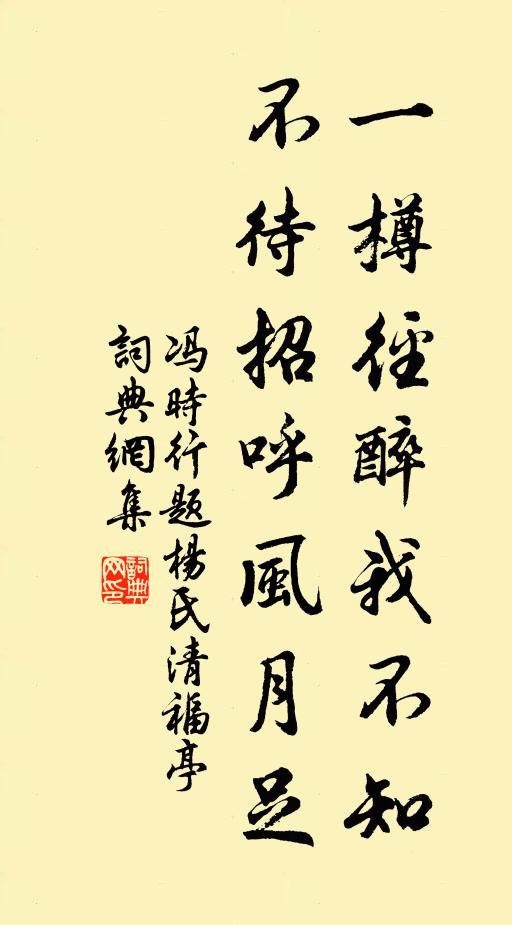 一樽徑醉我不知
不待招呼風月足
冯時行题楊氏清福亭
詞典網集
詞典网印